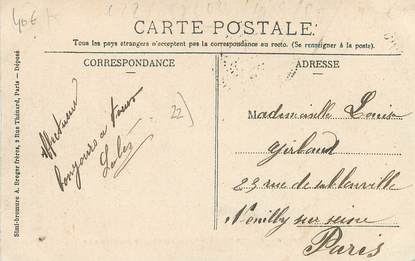 40€
CARTE POSTALE
Tous les pays étrangers n'acceptent pas la correspondance au recto. (Se renseigner à la poste).
CORRESPONDANCE
ADRESSE
Simi-bromure A. Breger Frères, 9 Rue Thénard, Paris — Déposé
22
Affectueux
bonjours a
Mademoiselle Louise
Girbaud
23 rue de
Neuilly sur seine
Paris